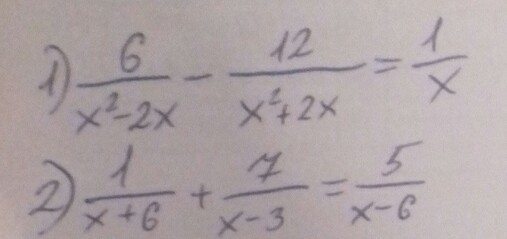 1) 6/(x²-2x) - 12/(x²+2x) = 1/x
2) 1/(x+6) + 7/(x-3) = 5/(x-6)